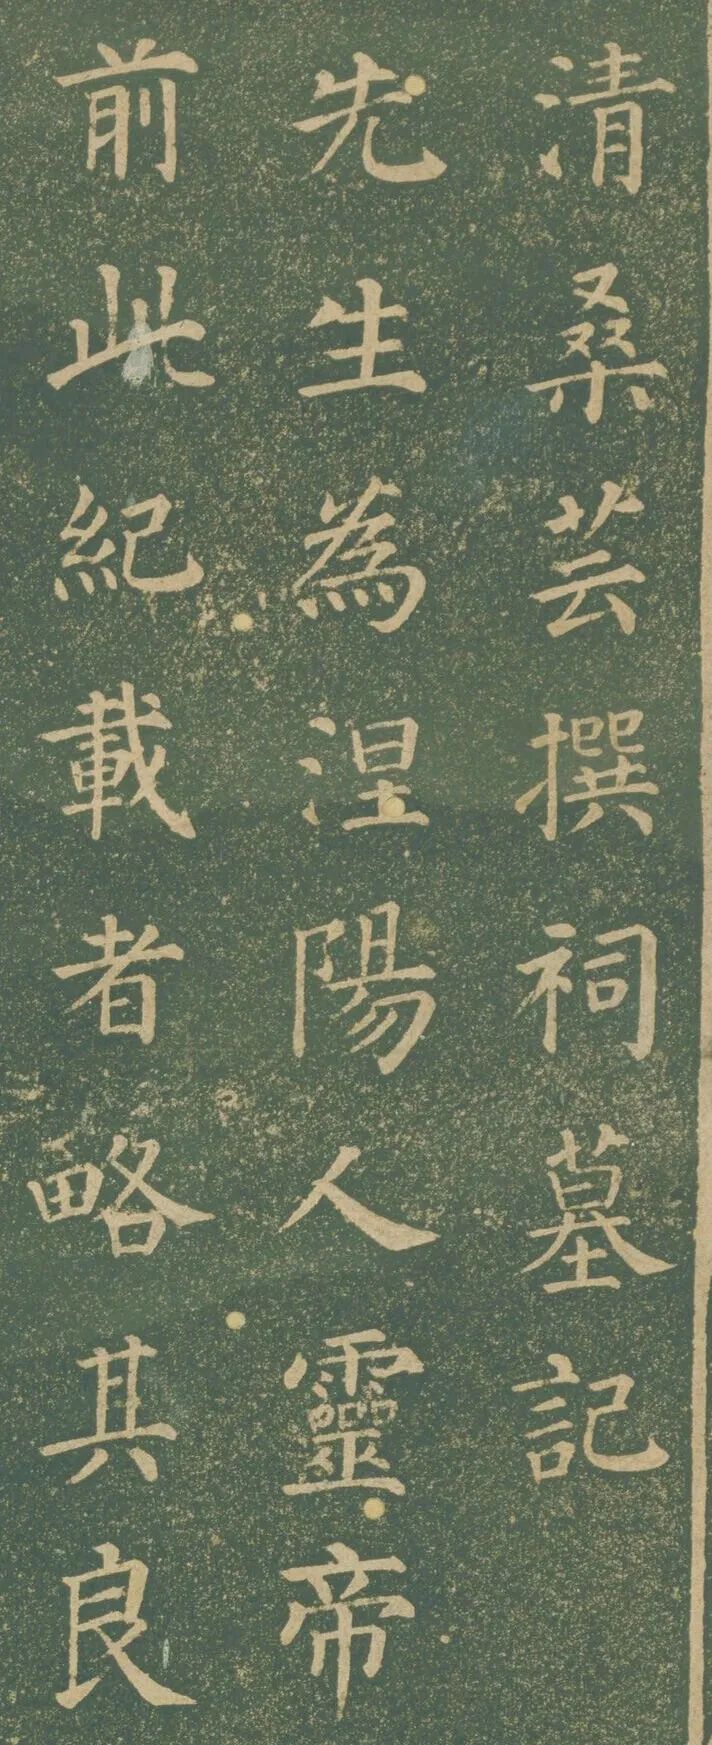 清桑芸撰祠墓記
先生為涅陽人靈帝
前此紀載者略其良